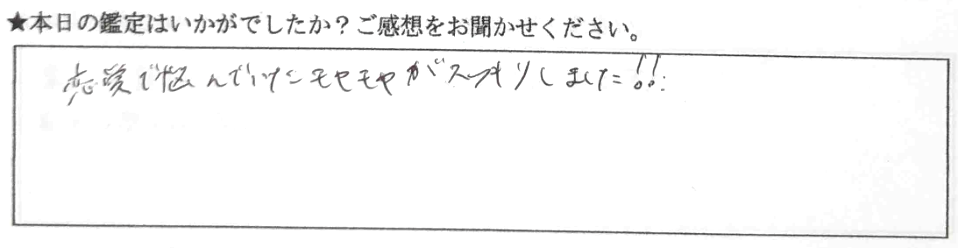 ★本日の鑑定はいかがでしたか？ご感想をお聞かせください。
恋愛で悩んでいたモヤモヤがスッキリしました!!